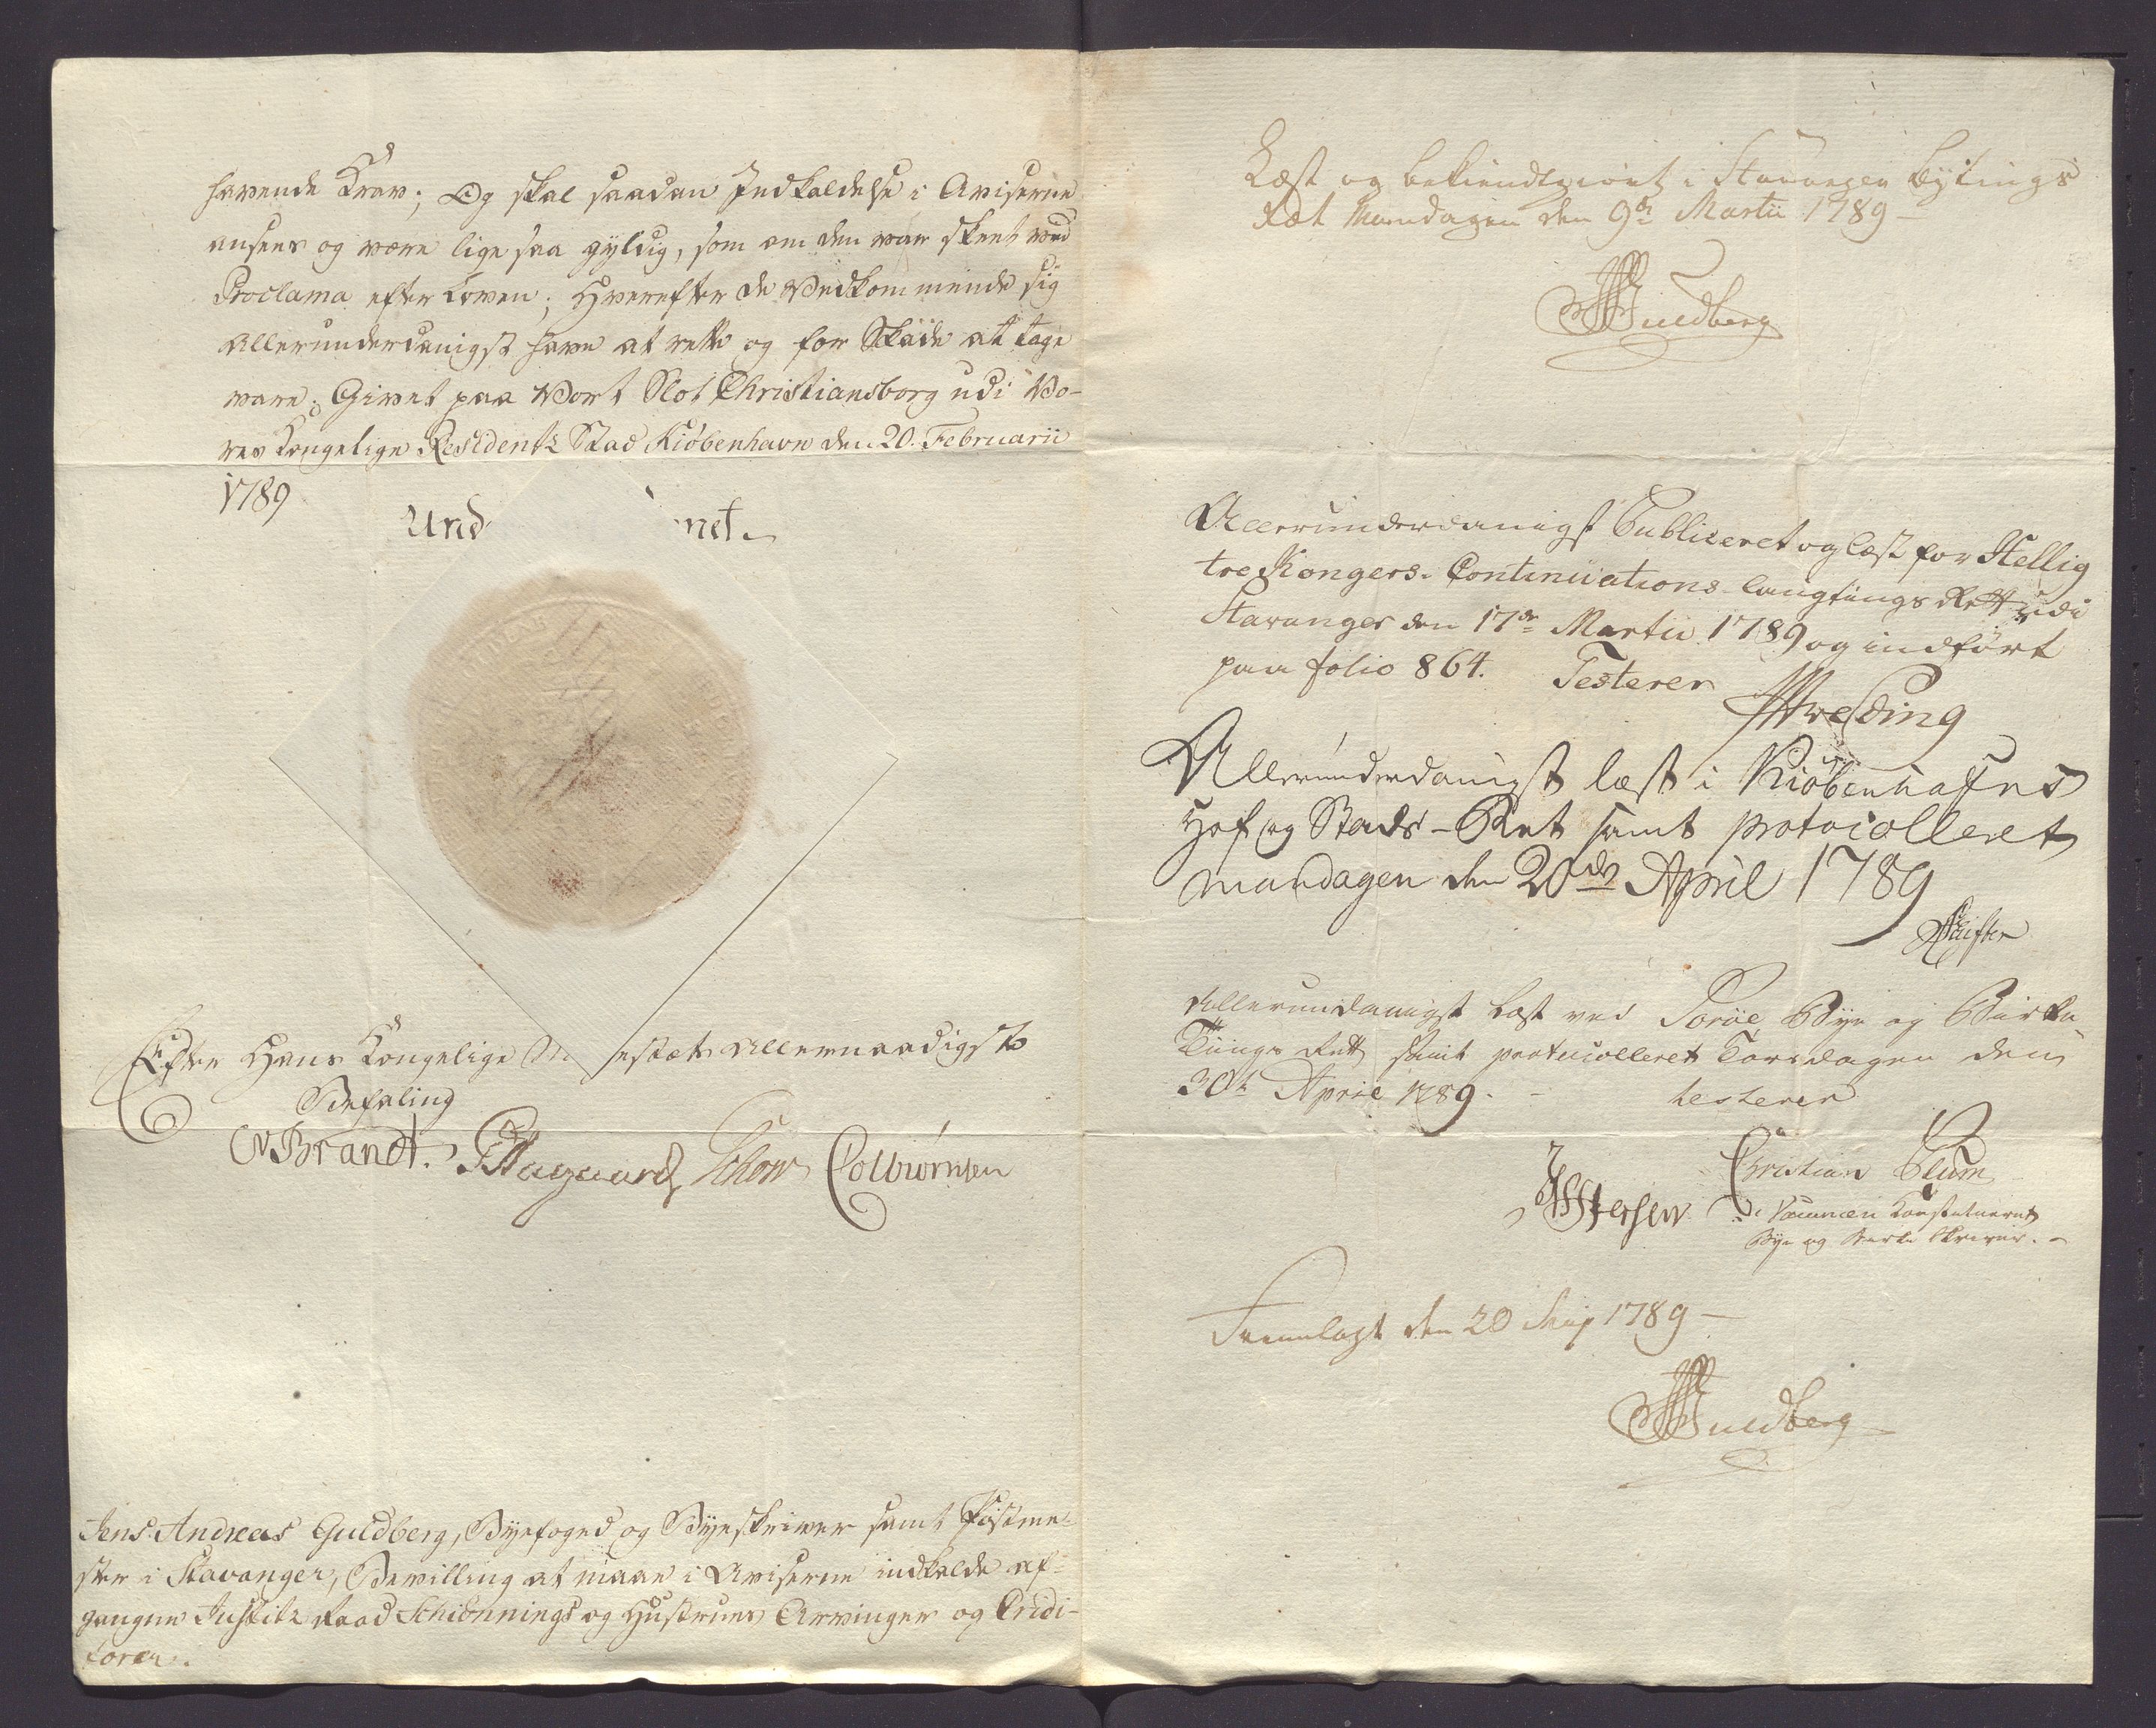 havende Krav; Og skal saadan Indkaldelse i Aviserne
ansees og være lige saa gyldig, som om den var skeet ved
Proclama efter Loven; Hvorefter de Vedkommende sig
allerunderdanigst have at rette og for Skade at tage
vare. Givet paa Vort Slot Christiansborg udi Vo-
res Kongelige Residentz Stad Kiöbenhavn den 20. Februarii
1789
Und net.
Efter Hans Kongelige M estæts allernaadigste
Befaling
Brandt. Aagaard Schow Colbiørnsen
Jens Andreas Guldberg, Byefoged og Byeskriver samt Postme-
ster i Stavanger, Bevilling at maae i Aviserne indkalde af-
gangne Justitz Raad Schiönnings og Hustrues Arvinger og Credi-
torer.
Læst og bekiendtgiort i Stavanger bytings
Ræt Mandagen den 9de Martii 1789
Guldberg
Allerunderdanigst Publiceret og læst for Hellig
tre Kongers Continuations laugtings Rett udi
Stavanger den 17de Martii 1789 og indført
paa folio 864. Testerer
Allerunderdanigst læst i Kiöbenhafns
Hof og Stads-Ret samt protocolleret
Mandagen den 20de April 1789
Allerundanigst læst ved Soröe Bye og Birke
Tiings Rett samt protocolleret Torsdagen den
30te April 1789. testerer
Christian Blum
Constitueret
Bye og Birke Skriver.
Fremlagt den 20 1789
Guldberg